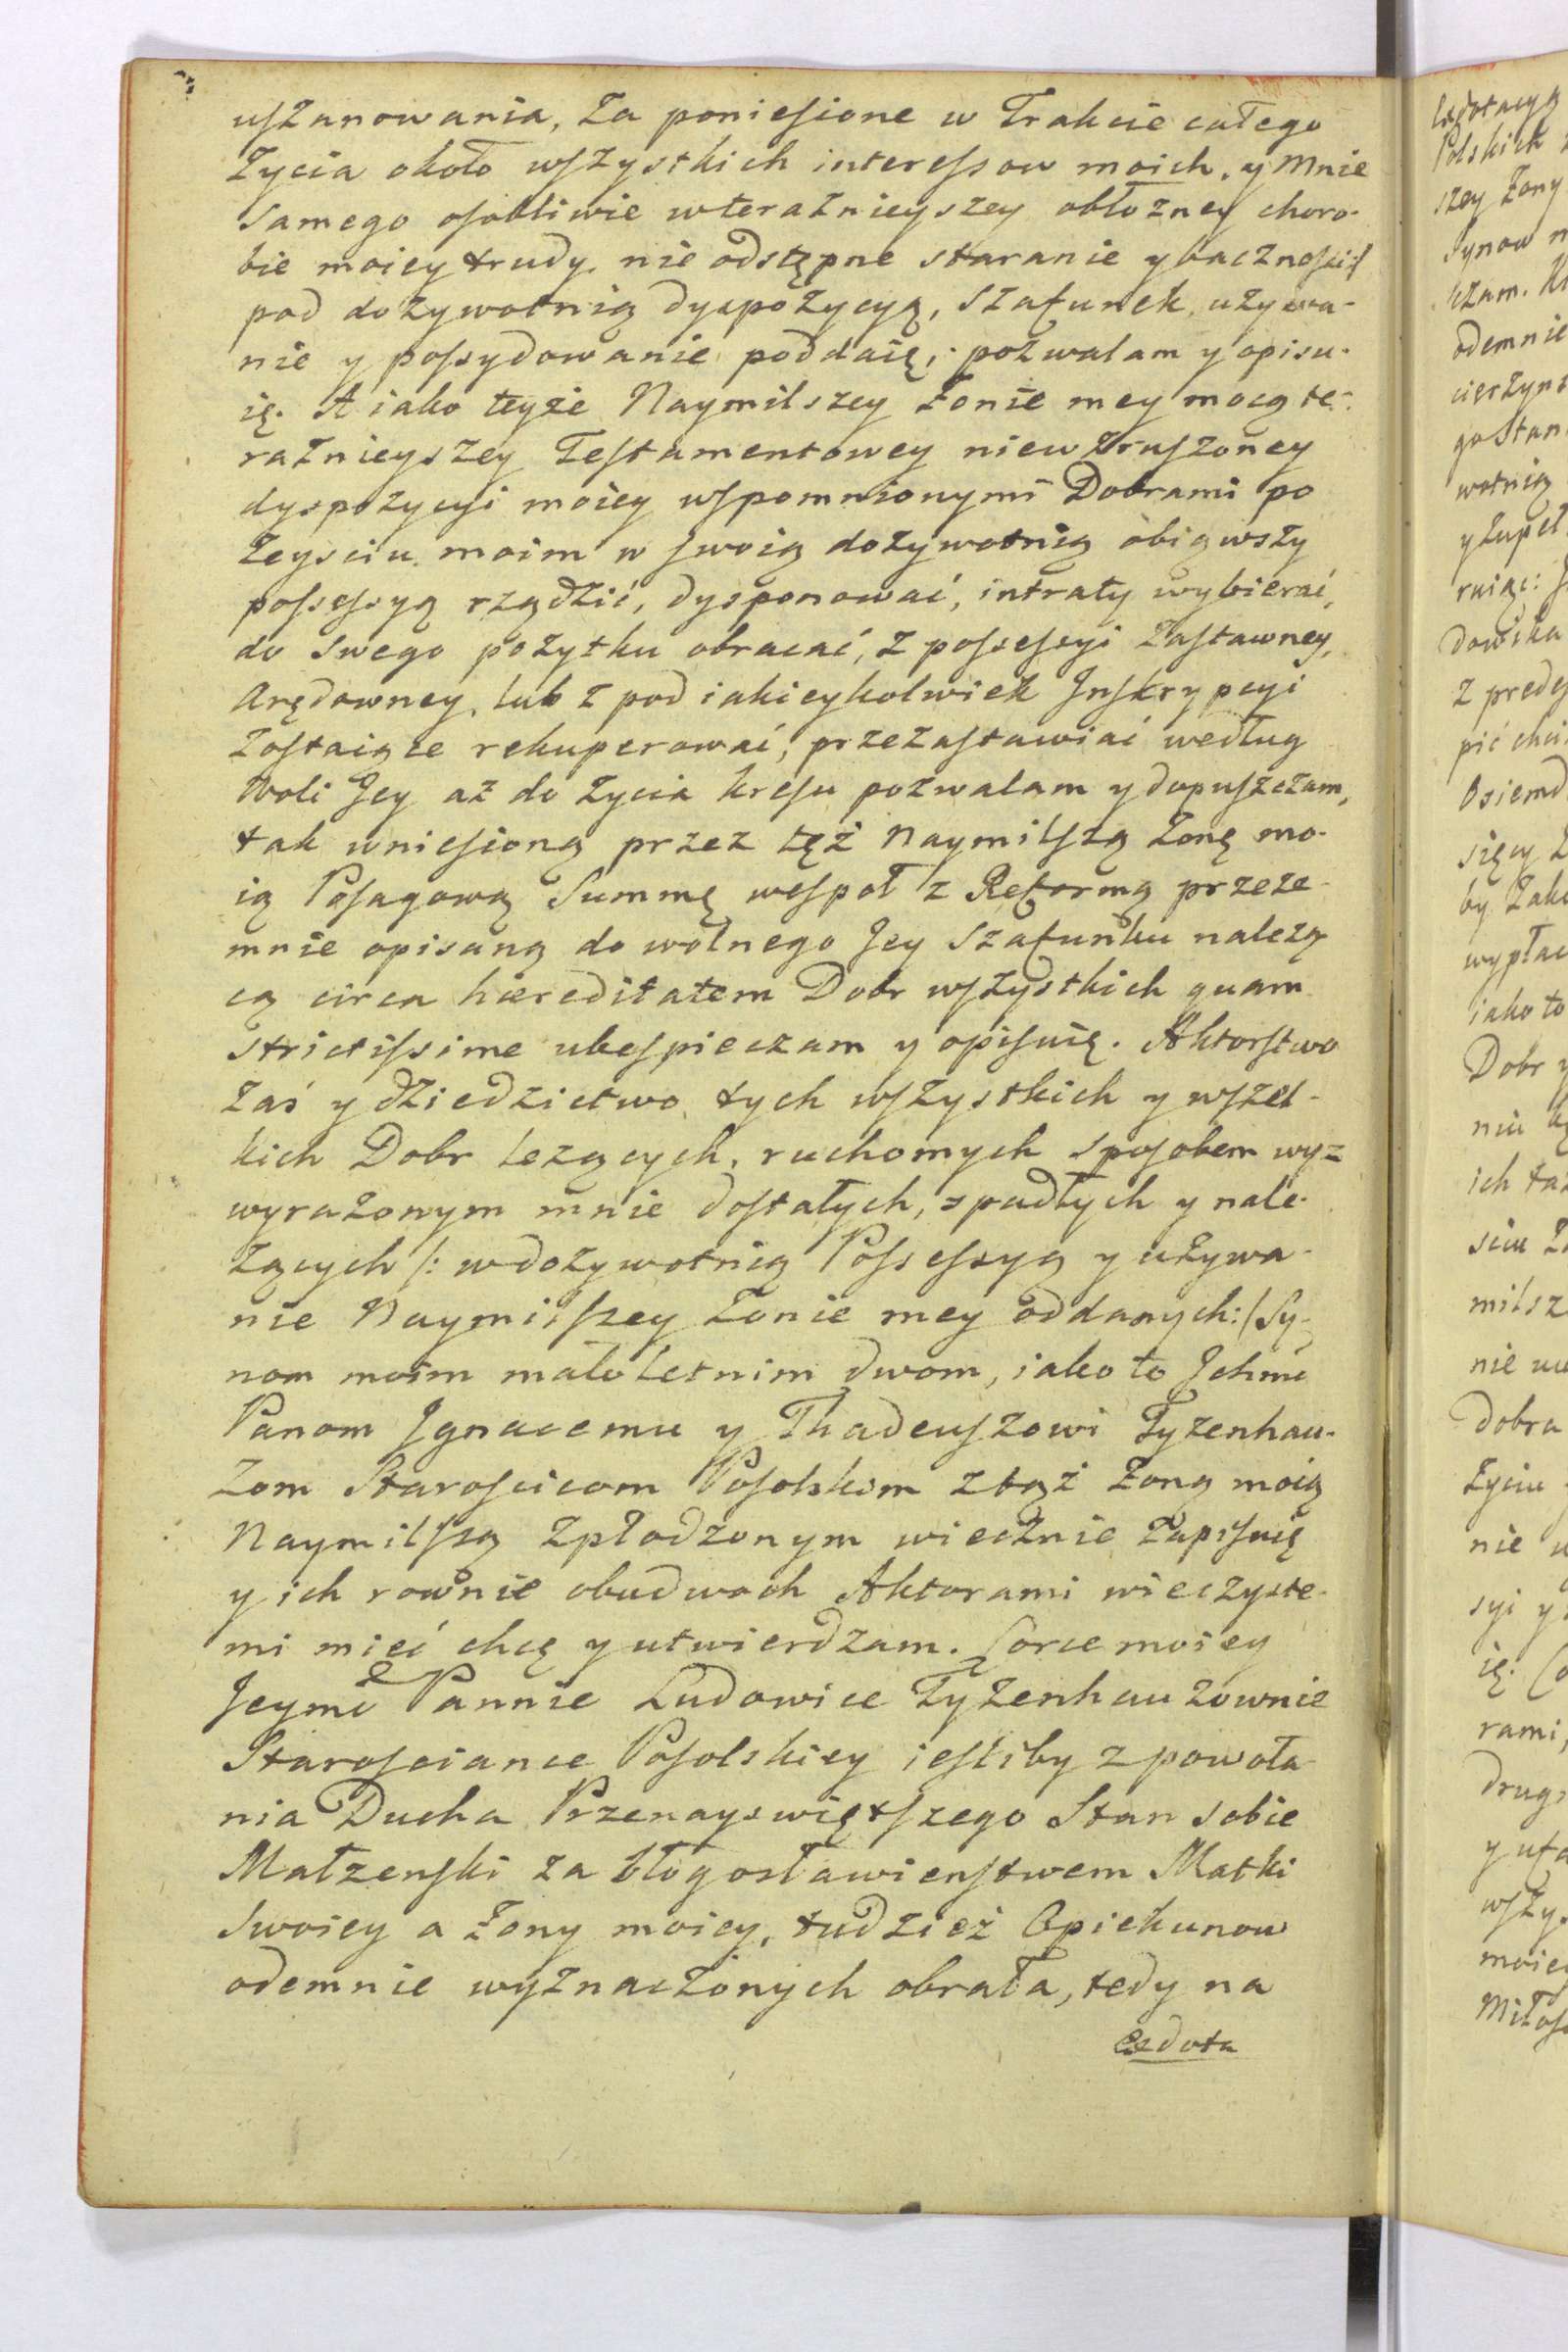 uszanowania, za poniesione w Trakcie całego
Zycia około wszystkich interessow moich, y Mnie
samego osobliwie w teraznieyszey obłozney choro-
bie moiey trudy, nie odstępne staranie y bacznosci:/
pod dozywotnią dyspozycyą, szafunek, używa-
nie y possydowanie poddaię, pozwalam y opisu-
ię. A iako teyże Naymilszey Żonie mey mocą te-
raznieyszey Testamentowey niewzruszoney
dyspozycyi moiey wspomnionymi Dobrami po
zeysciu moim w swoią dożywotnią obiąwszy
possessyą rządzić, dysponować, intraty wybierać,
do swego pożytku obracać, z possessyi zastawney,
Arędowney, lub z pod iakieykolwiek Inskrypcyi
zostaiące rekuperować, przezastawiać według
Woli Jey aż do życia kresu pozwalam y dopuszczam,
tak wniesioną przez tęż Naymilszą żonę mo-
ią Posagową Summę wespoł z Reformą przeze-
mnie opisaną do wolnego Jey szafunku należą-
cą circa hæreditatem Dobr wszystkich quam
strictissime ubespieczam y opisuię. Aktorstwo
zaś y dziedzictwo tych wszystkich y wszel-
kich Dobr leżących, ruchomych sposobem wyż
wyrażonym mnie dostałych, spadłych y nale-
zących /: w dożywotnią Possessyą y używa-
nie Naymilszey Żonie mey oddanych:/ Sy-
nom moim małoletnim dwom, iako to Jchmć
Panom Jgnacemu y Thadeuszowi Tyzenhau-
zom Staroscicom Posolskim z tąż Żoną moią
Naymilszą zpłodzonym wiecznie zapisuię
y ich rownie obudwoch Aktorami wieczyste-
mi mieć chcę y utwierdzam. Corce moiey
Jeymć Pannie Ludowice Tyzenhauzownie
Starosciance Posolskiey iesliby z powoła-
nia Ducha Przenayswiętszego Stan sobie
Małzenski za błogosławienstwem Matki
swoiey a Żony moiey, tudzież Opiekunow
odemnie wyznaczonych obrała, tedy na
Exdota